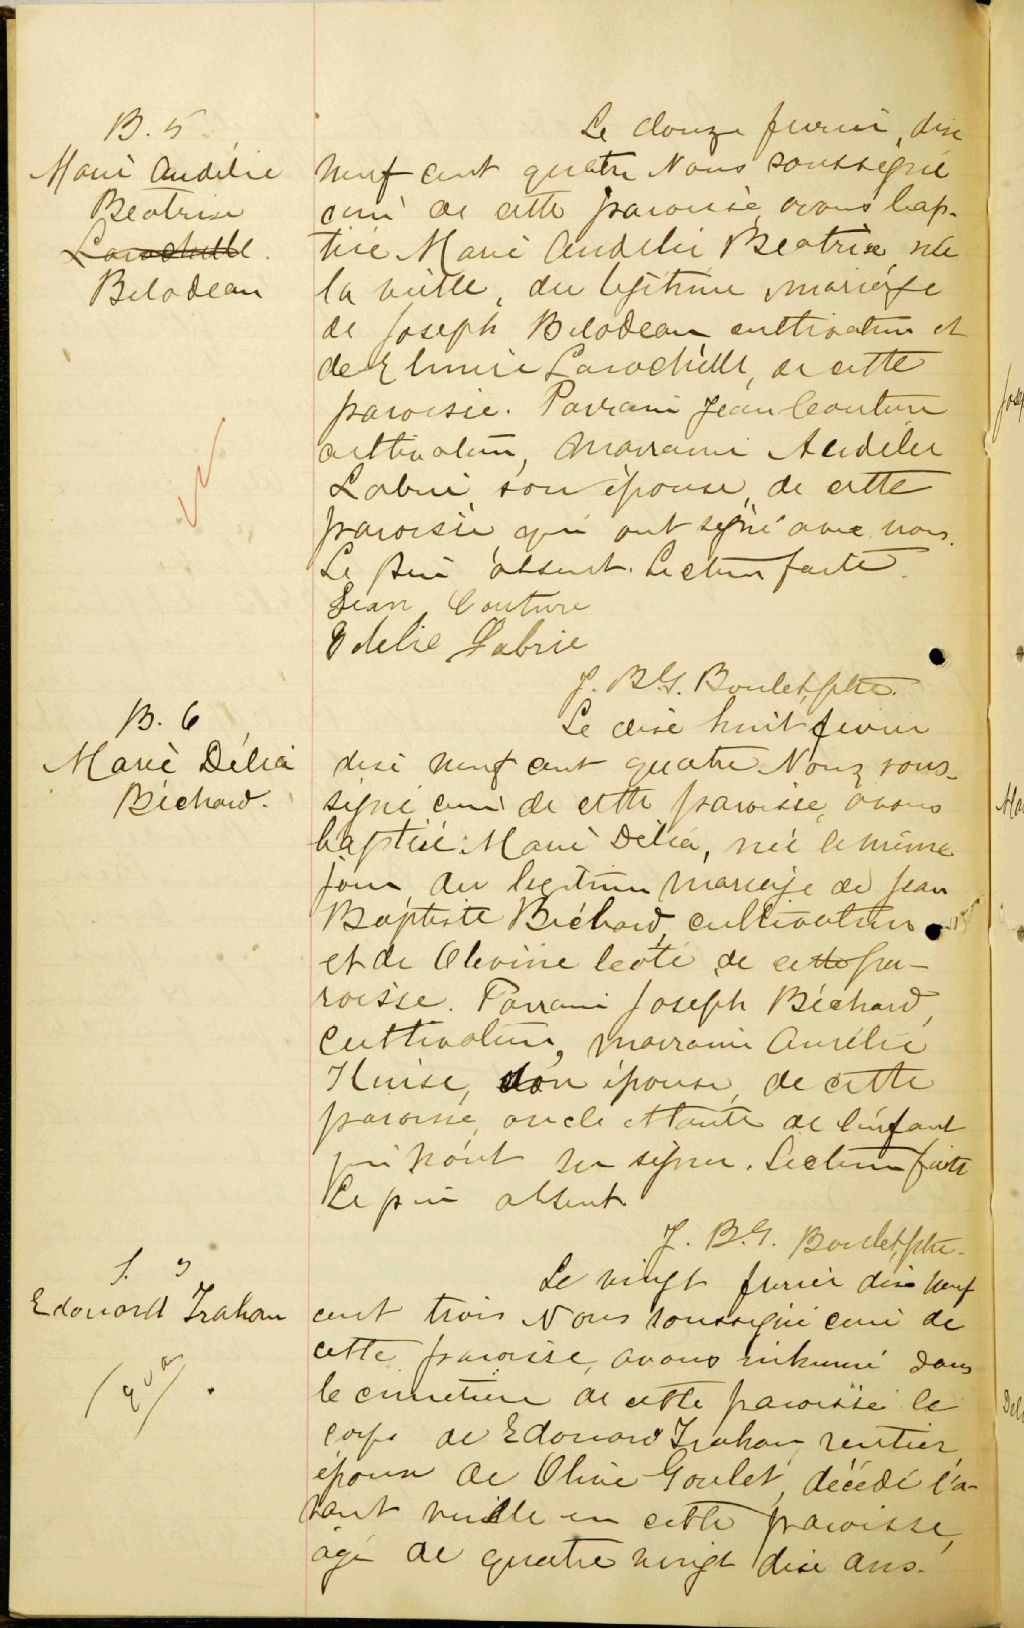 B. 5
Marie Audélie
Beatrice
Larochelle.
Bilodeau
Le douze fevrier, dix
neuf cent quatre Nous soussigné
curé de cette paroisse, avons bap-
tisé Marie Audélie Beatrice née
la veille, du légitime mariage
de Joseph Bilodeau, cultivateur et
de Larochelle, de cette
paroisse. Parrain Jean Couture
cultivateur, Marraine Audélie
Labrie, son épouse, de cette
paroisse qui ont signé avec nous.
Le père absent. Lecture faite.
Jean Couture
Odélie Labrie
J. B. G. Boulet, ptre.
B. 6
Marie Délia
Béchard.
Le dix huit fevrier
dix neuf cent quatre Nous sous-
signé curé de cette paroisse, avons
baptisé Marie Délia, née le même
jour, du legitime mariage de Jean
Baptiste Béchard, cultivateur
et de Olevine Coté, de cette pa-
roisse. Parrain Joseph Béchard,
cultivateur, marraine Aurélie
son épouse, de cette
paroisse, oncle et tante de l'enfant
qui n'ont su signer. Lecture faite
Le père absent.
J. B. G. Boulet, ptre.
S. 3
Edouard Trahan
(90 ans)
Le vingt fevrier dix neuf
cent trois Nous soussigné curé de
cette paroisse, avons inhumé dans
le cimetière de cette paroisse le
corps de Edouard Trahan, rentier,
époux de Olive Goulet, décédé l'a-
vant veille en cette paroisse,
agé de quatre vingt dix ans.